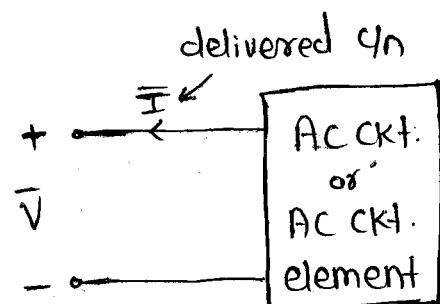 delivered c/n
I̅
+
V̅
-
AC Ckt.
or
AC Ckt.
element